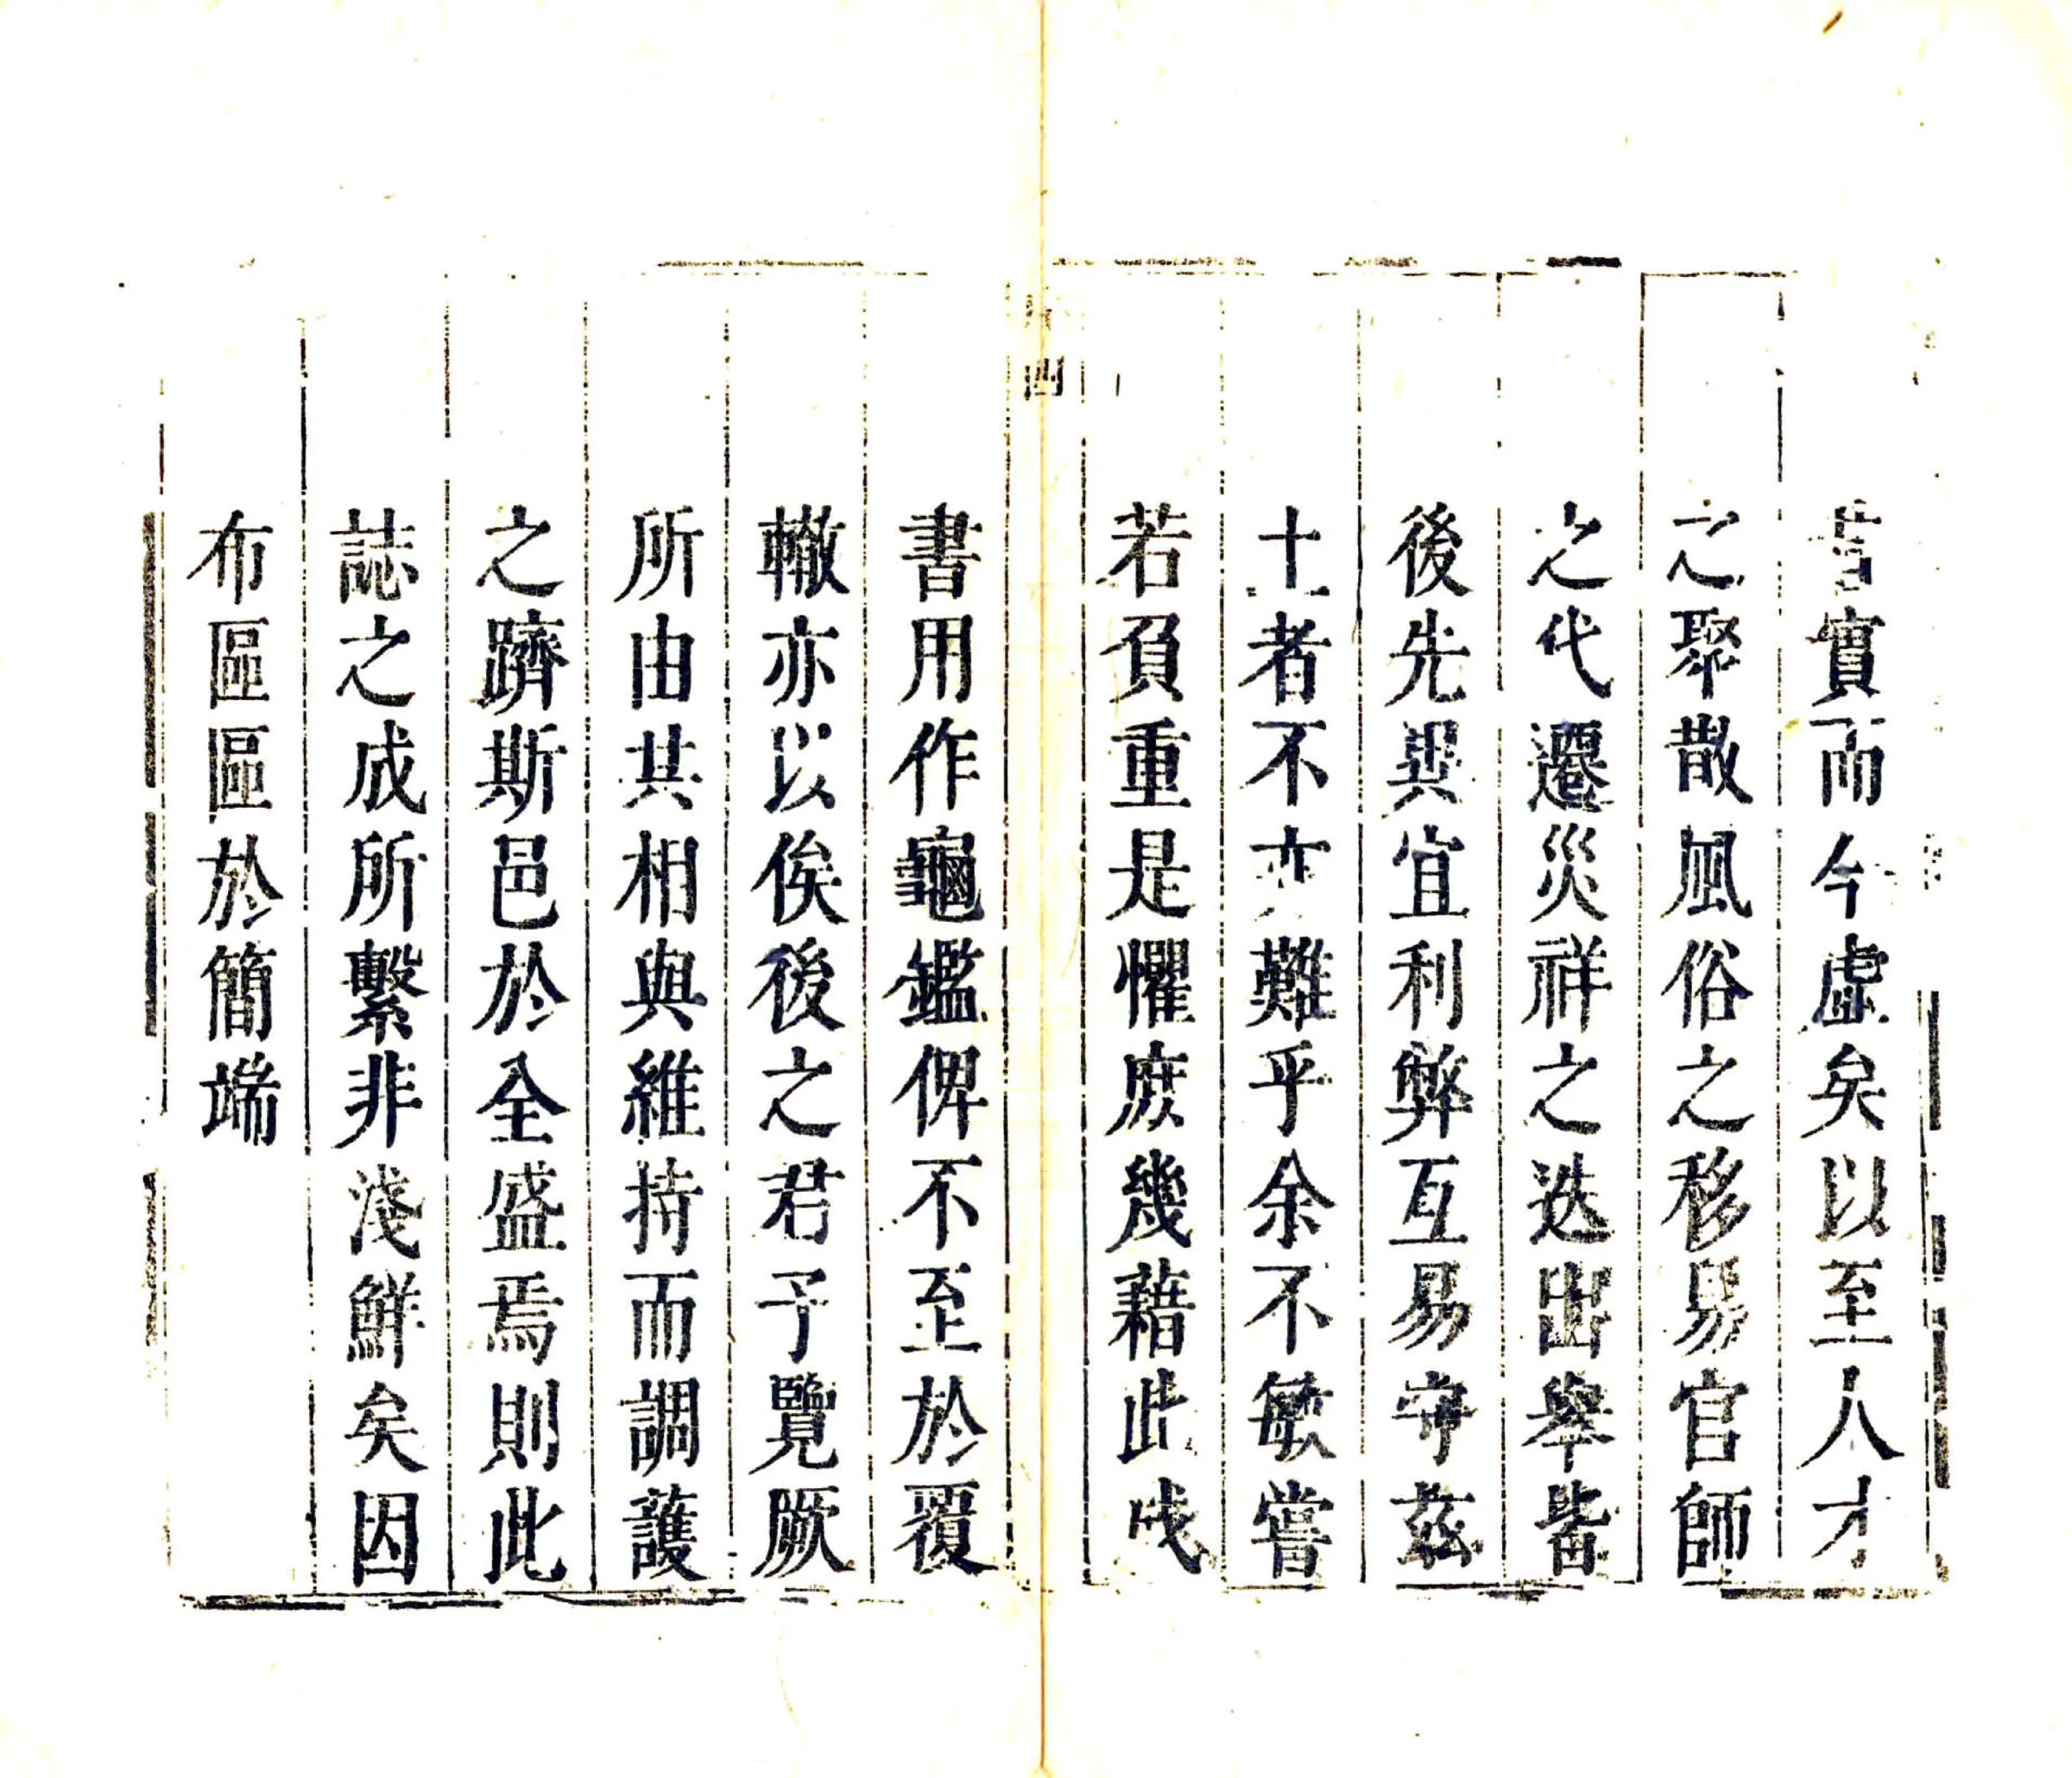 昔實而今虛矣以至人才
之聚散風俗之移易官師
之代遷災祥之迭出舉皆
後先異宜利弊互易守茲
土者不亦難乎余不敏嘗
若負重是懼庶幾藉此成
四
書用作龜鑑俾不至於覆
轍亦以俟後之君子覽厥
所由其相與維持而調護
之躋斯邑於全盛焉則此
誌之成所繫非淺鮮矣因
布區區於簡端